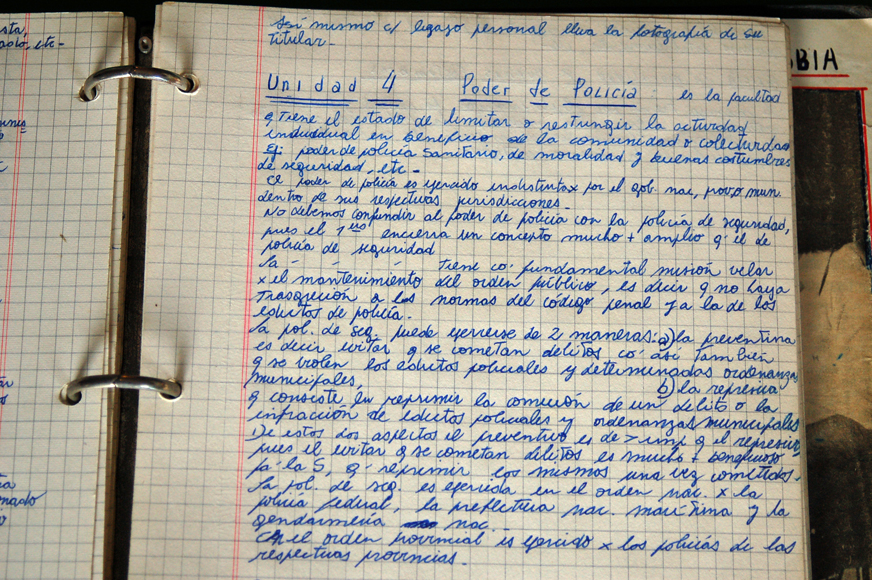 Así mismo c/ legajo personal lleva la fotografía de su
titular.-
Unidad 4 Poder de Policía es la facultad
q tiene el estado de limitar o restringir la actividad
individual en beneficio de la comunidad o colectividad
Ej: poder de policía Sanitario, de moralidad y buenas costumbres
de seguridad, etc.-
El poder de policía es ejercido indistintax por el gob. nac, prov o mun.
dentro de sus respectivas jurisdicciones.-
No debemos confundir al poder de policía con la policía de seguridad,
pues el 1ero encierra un concepto mucho + amplio q' el de
policía de seguridad
La " " " tiene co' fundamental misión velar
x el mantenimiento del orden público, es decir q no haya
trasgresión a las normas del código penal y a la de los
edictos de policía.-
La pol. de seg. puede ejercerse de 2 maneras: a) la preventiva
es decir evitar q se cometan delitos co' así también
q se violen los edictos policiales y determinadas ordenanzas
municipales, b) la represiva
q consiste en reprimir la comisión de un delito o la
infracción de edictos policiales y ordenanzas municipales
De estos dos aspectos el preventivo es de > imp q el represivo
pues el evitar q se cometan delitos es mucho + beneficioso
pa' la S, q' reprimir los mismos una vez cometidos.
La pol. de seg es ejercida en el orden nac. x la
policía federal, la prefectura nac. marítima y la
gendarmería nac.
En el orden provincial es ejercido x las policías de las
respectivas provincias.-
BIA
sta,
ado, etc-
unes
nado